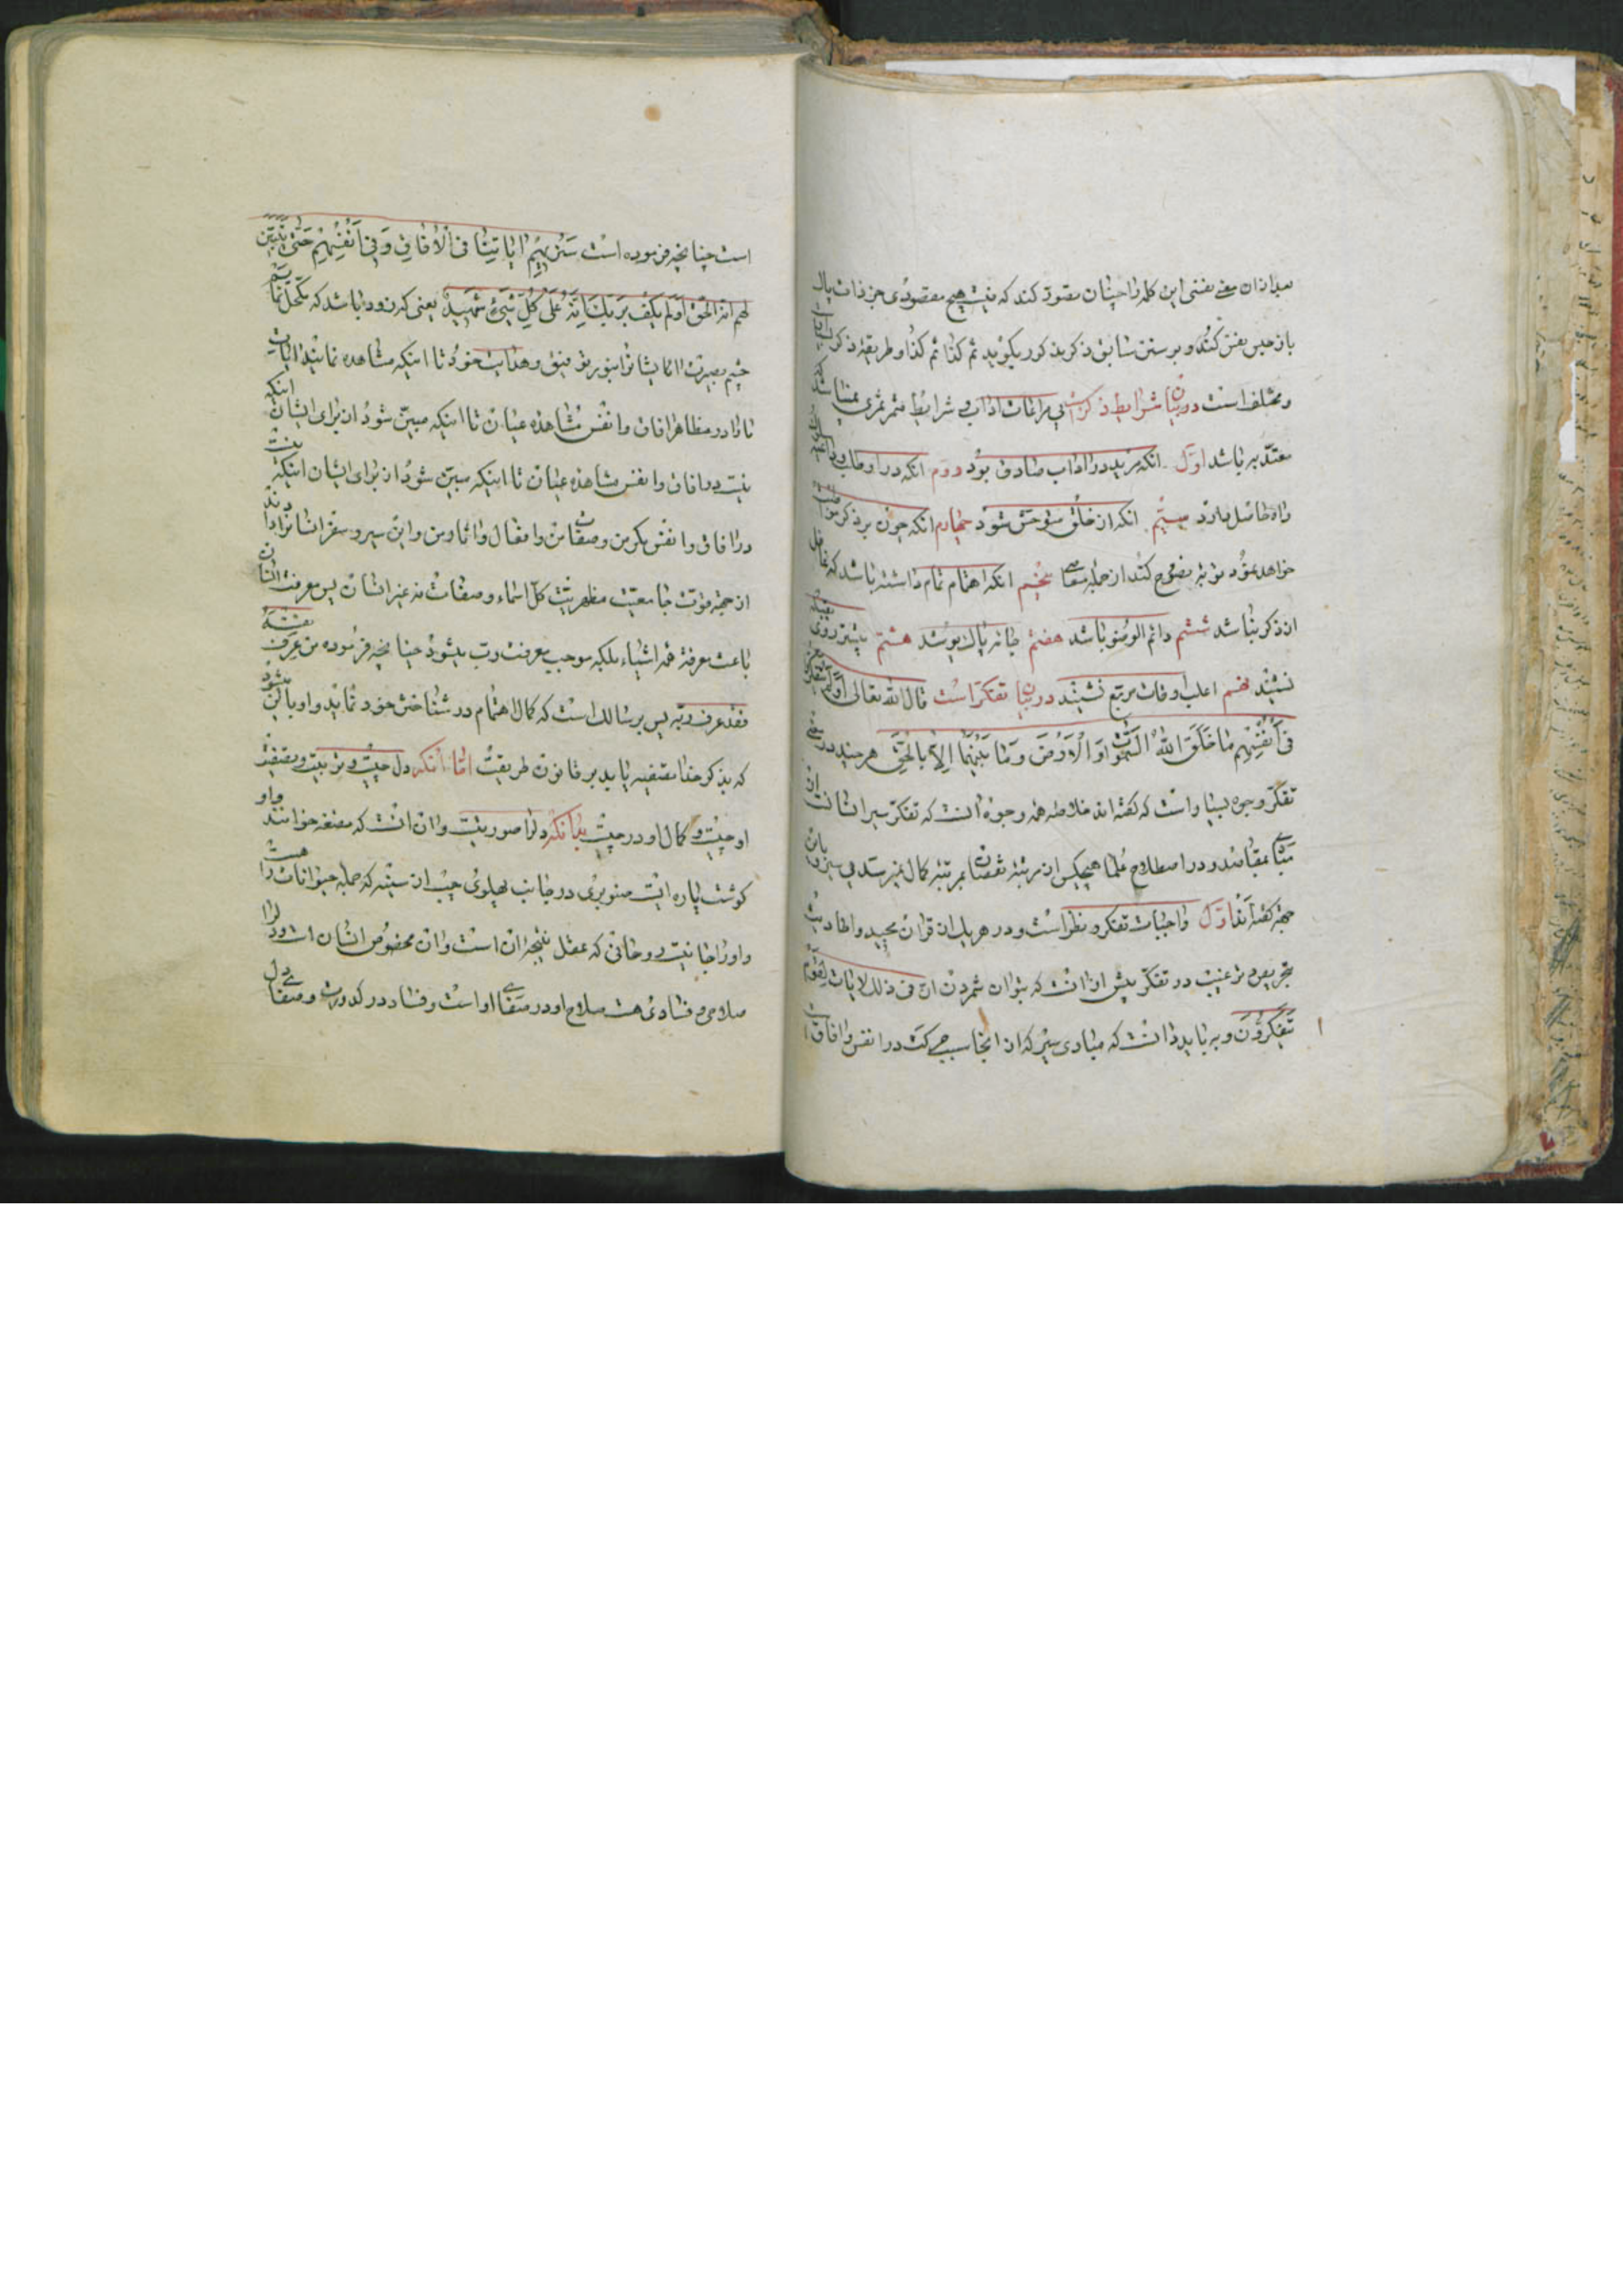 بعد از ان معنی نفی این کلمه را چنان تصور کند که نیست هیچ مقصودی جز ذات پاک
باز حبس نفس کند و بر سنن سابق ذکر مذکور بگوید ثم کذا ثم کذا و طریقه ذکر
و مختلف است در بیان شرایط ذکر است بی مراعات اداب و شرایط مثمر ثمری نمیباشد
معتد به باشد اول انکه مرید در اداب صادق بود دوم انکه درد و طلب و داعیه
راه حاصل دارد سیم انکه از خلق متوحش شود چهارم انکه چون بر ذکر
خواهد نمود توبه نصوح کند از جمله معاصی پنجم انکه اهتمام تمام داشته باشد که غافل
از ذکر نباشد ششم دائم الوضو باشد هفتم جامه پاک پوشد هشتم پیشتر روی بقبله
نشیند نهم اغلب اوقات مربع نشیند در بیان تفکر است قال الله تعالی اولم یتفکروا
فی أنفسهم ما خلق الله السموات و الارض و ما بینهما الا بالحق هر چند در معنی
تفکر وجوه بسیار است که گفته اند خلاصه همه وجوه انست که تفکر سیر انسانست از
مبادی بمقاصد و در اصطلاح علما هیچکس از مرتبه نقصان بمرتبه کمال نمیرسد بی سیر و بان
جهة گفته اند اول واجبات تفکر و نظر است و در هر یک از قران مجید و احادیث
تحریص و ترغیب در تفکر بیش از انست که بتوان شمردن ان فی ذلک لایات لقوم
یتفکرون و بباید دانست که مبادی سیر که از انجا سبب حرکت در انفس و افاق
است چنانچه فرموده است سنریهم ایاتنا فی الافاق و فی أنفسهم حتی یتبین
لهم انه الحق اولم یکف بربک انه علی کل شیء شهید یعنی که زود باشد که مکحل نمائیم
چشم بصیرت ایشانرا بنور توفیق و هدایت خود تا اینکه مشاهده نمایند ایات
ما را در مظاهر افاق و انفس مشاهده عیان تا اینکه مبین شود از برای ایشان اینکه
نیست در افاق و انفس مشاهده عیان تا اینکه مبین شود از برای ایشان اینکه نیست
در افاق و انفس مگر من و صفات من و افعال و اثار من و این سیر و سفر انسانرا دادند
از جهة قوت جامعیت مظهریت کل اسماء و صفات نه غیر انسان پس معرفت انسان
باعث معرفة همه اشیاء بلکه موجب معرفت رب میشود چنانچه فرموده من عرف نفسه
فقد عرف ربه پس بر سالک است که کمال اهتمام در شناختن خود نماید و او باین میشود
که بذکر خدا تصفیه یابد بر قانون طریقت اما انکه دل چیست و تربیت و تصفیه
او چیست و کمال او در چیست بدانکه دلرا صورتیست و ان انست که مضغه خوانند و او
گوشت پاره ایست صنوبری در جانب پهلوی چپ از سینه که جمله حیوانات را هست
و او را جانیست روحانی که عقل نتیجه ان است و ان مخصوص انسان است و دلرا
صلاحی و فسادی هست صلاح او در صفای او است و فساد در کدورت و صفای دل